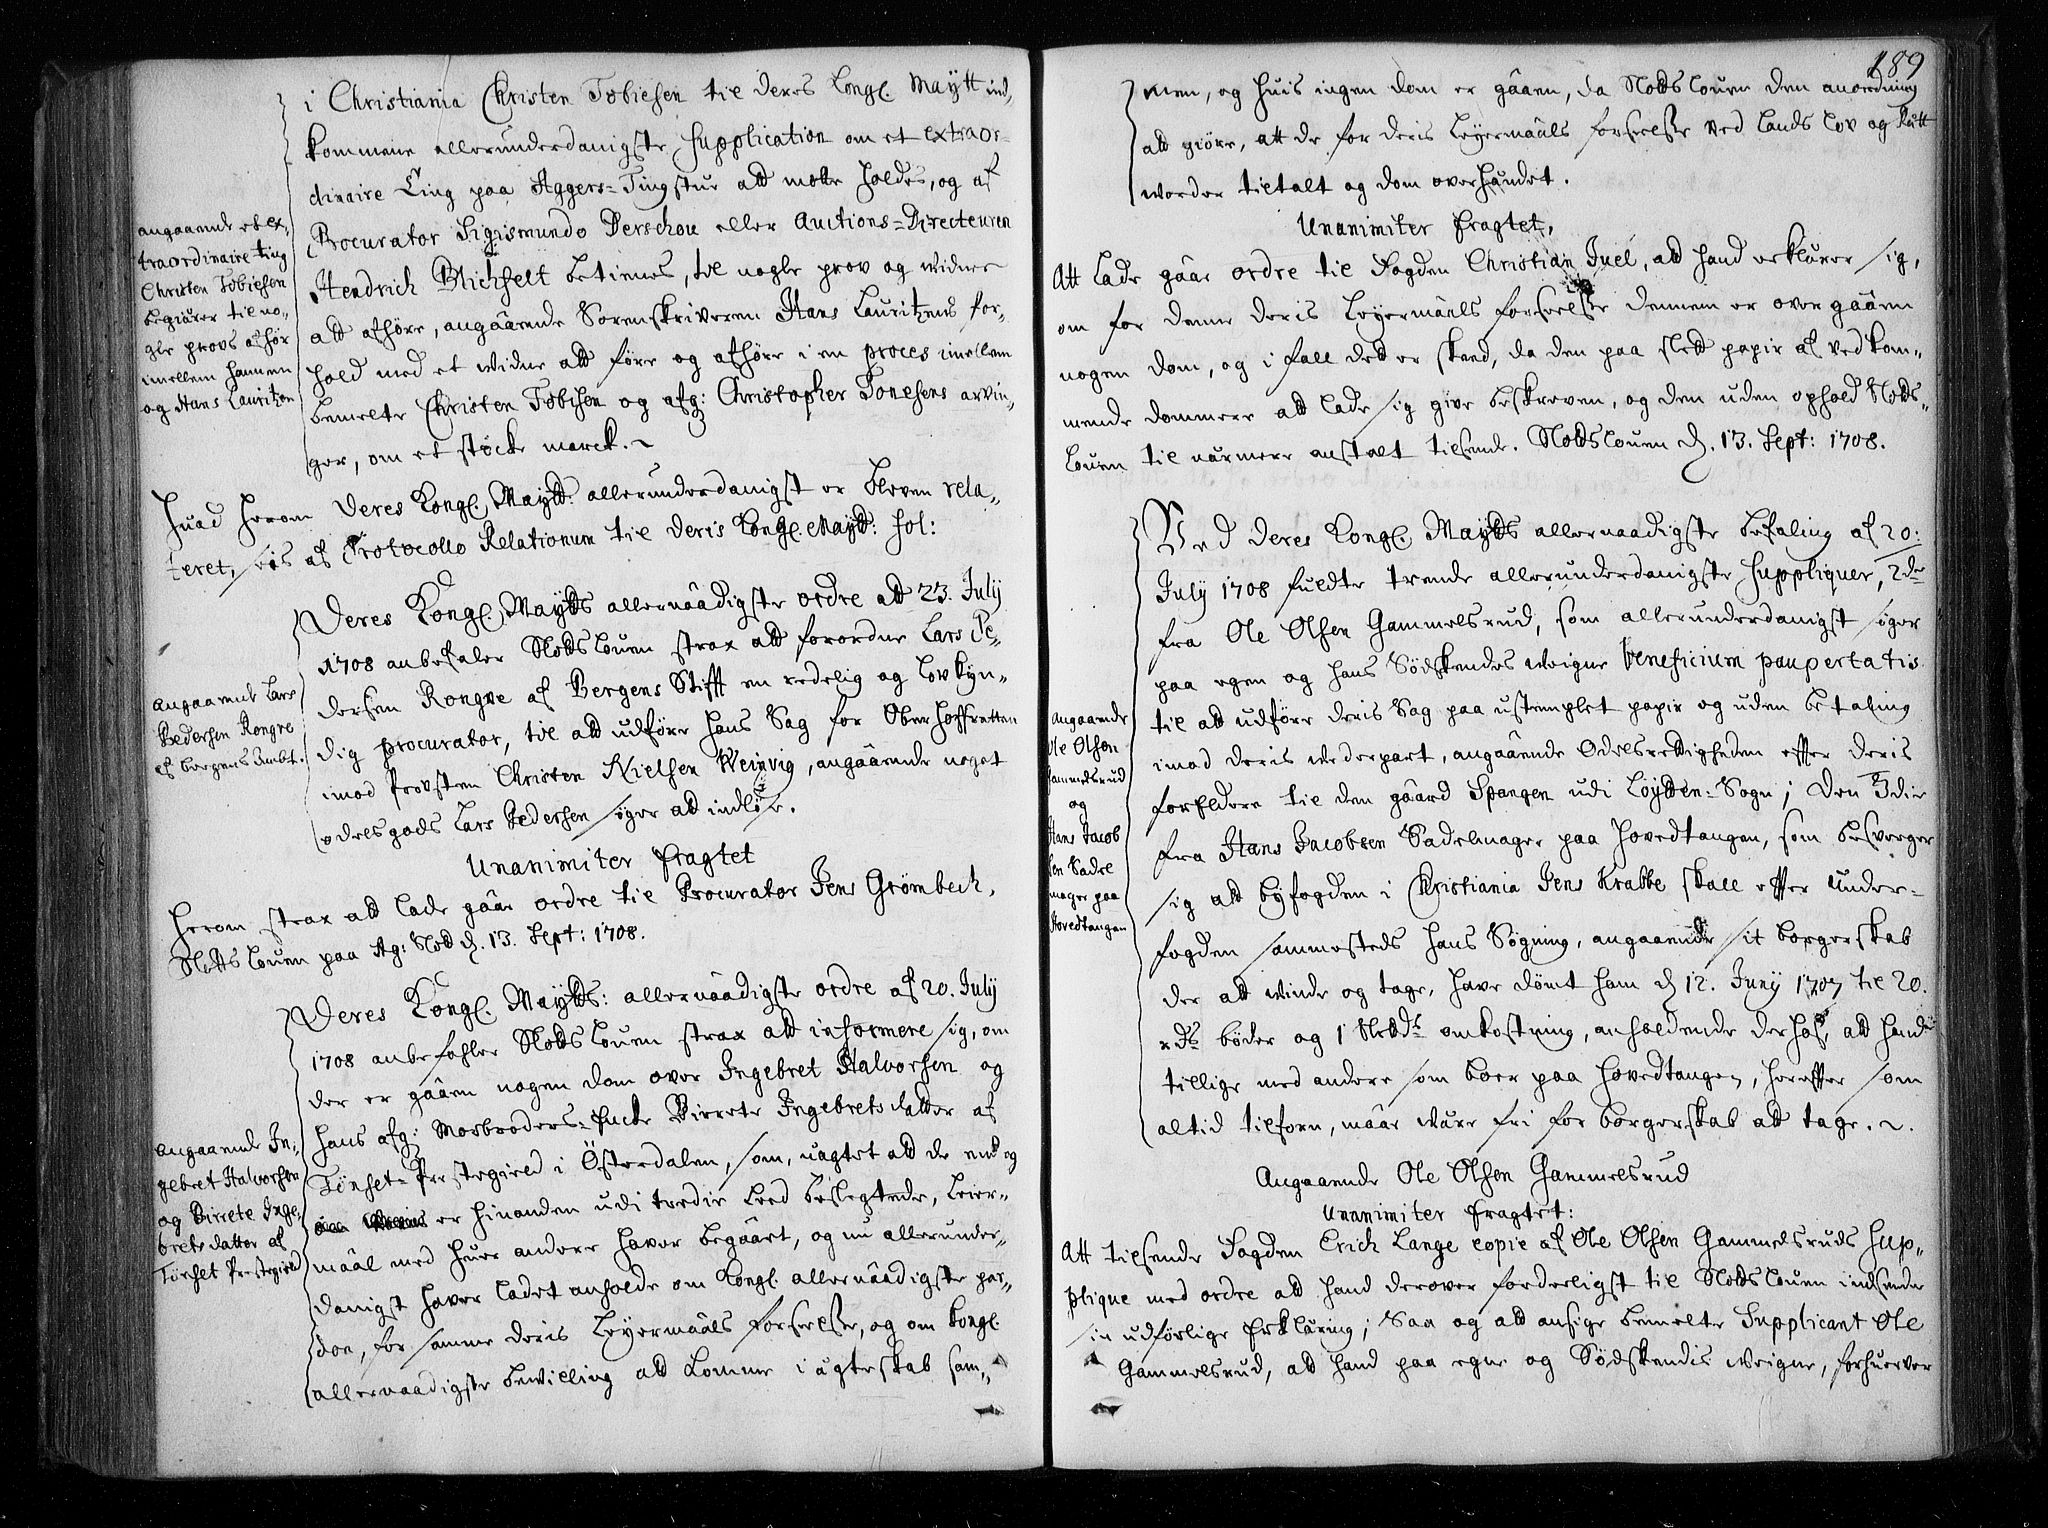 i Christiania Christen Tobiesen til deres Kongl. Maytt ind,
kommene allerunderdanigste Supplication om et extraor-
dinaire Ting paa Aggers-Tingstue att motte holdes, og af
Procurator Sigismundo Derschou eller Auctions-Directeuren
Hendrich Blichfelt betienes, til nogle prov og widner
att afhöre, angaaende Sorenskriveren Hans Lauritzens for,
hold med et widne att føre og afhöre i en proces imellem
bemelte Christen Tobisen og afg: Christopher Tonesens arvin,
ger, om et støcke marck.
angaaende et ex,
traordinaire ting
Christen Tobiesen
begiærer til no,
gle provs afhör
imellem hannem
og Hans Lauritzen
Huad herom Deres Kongl. Maytt: allerunderdanigst er bleven rela,
teret, sees af Protocollo Relationum til Deris Kongl. Maytt: fol:
Deres Kongl. Maytts allernaadigste ordre att 23. July
1708 anbefaler Slotts Louen strax att forordne Lars Pe,
dersen Rongve af Bergens Stifft en redelig og lovkyn,
dig procurator, til att udføre hans Sag for Oberhoffretten
imod Provsten Christen Nielsen Weinvig, angaaende noget
odelsgods Lars Pedersen søger att indløse.
angaaende Lars
Pedersen Rongve
af bergens Ambt.
Unanimiter fragtet
Herom strax att lade gaae ordre til Procurator Jens Grømbech,
Slotts Louen paa Ag: Slott d. 13. Sept: 1708.
Deres Kongl. Maytts: allernaadigste ordre af 20. July
1708 anbefahler Slotts Louen strax att informere sig, om
der er gaaen nogen dom over Ingebret Halvorsen og
hans afg: Morbroders-Encke Birrete Ingebrets datter af
Tönset-Prestegield i Österdalen, som, uagtet att de end og
er hinanden udi tredie Leed beslegtede, Leier,
maal med huer andre haver begaaet, og nu allerunder,
danigst haver ladet anholde om Kongl. allernaadigste par,
don, for samme deris Leyermaals forseelse, og om Kongl.
allernaadigste bewilling att komme i ægteskab sam,
Angaaende In,
gebret Halvorsen
og Birrete Inge,
brets datter af
Tönset Prestegield
189
men, og huis ingen dom er gaaen, da Slotts Louen den anordning
att giöre, att de for deris Leyermaals forseelse ved Lands Lov og Rætt
worder tiltalt og dom overhændet.
Unanimiter fragtet,
Att lade gaae ordre til Fogden Christian Juel, att hand erklærer sig,
om for denne deris Leyermaals forseelse dennem er overgaaen
nogen dom, og i fall det er skeed, da den paa slett papir af vedkom,
mende dommere att lade sig give beskreven, og den uden ophold Slotts,
Louen til nærmere anstalt tilsende. Slotts Louen d. 13. Sept: 1708.
Ved Deres Kongl. Maytts allernaadigste befaling af 20:
July 1708 fuldte trende allerunderdanigste Suppliquer, 2de
fra Ole Olsen Gammelsrud, som allerunderdanigst søger
paa egen og hans Södskendes weigne beneficium paupertatis
til att udføre deris Sag paa ustemplet papir og uden betaling
imod deris wederpart, angaaende Odelsrettigheden effter deris
forældre til den gaard Spangen udi Löytten-Sogn; Den 3die
fra Hans Jacobsen Sadelmager paa Hovedtangen, som besverger
sig att byfogden i Christiania Jens Krabbe skall effter Under-
fogden sammesteds hans Søgning, angaaende sit borgerskab
der att winde og tage, have dømt ham d 12. Juny 1707 til 20.
rdr bøder og 1 Slettdr omkostning, anholdende derhos, att hand
tillige med andre som boer paa Hovedtangen, hereffter som
altid tilforn, maae være fri for borgerskab att tage.
angaaende
Ole Olsen
Gammelsrud
og
Hans Jacob
sen Sadel
mager paa
Hovedtangen
Angaaende Ole Olsen Gammelsrud
Unanimiter fragtet:
Att tilsende Fogden Erich Lange copie af Ole Olsen Gammelsruds Sup,
plique med ordre att hand derover forderligst til Slotts Louen indsende
sin udførlige Erklæring; Saa og att ansige bemelte Supplicant Ole
Gammelsrud, att hand paa egne og Södskendis weigne, forhuerver